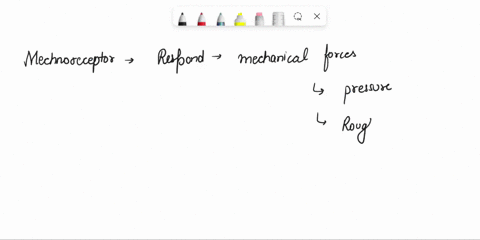 Mechnoreceptor → Respond → mechanical forces
↳ pressure
↳ Roug